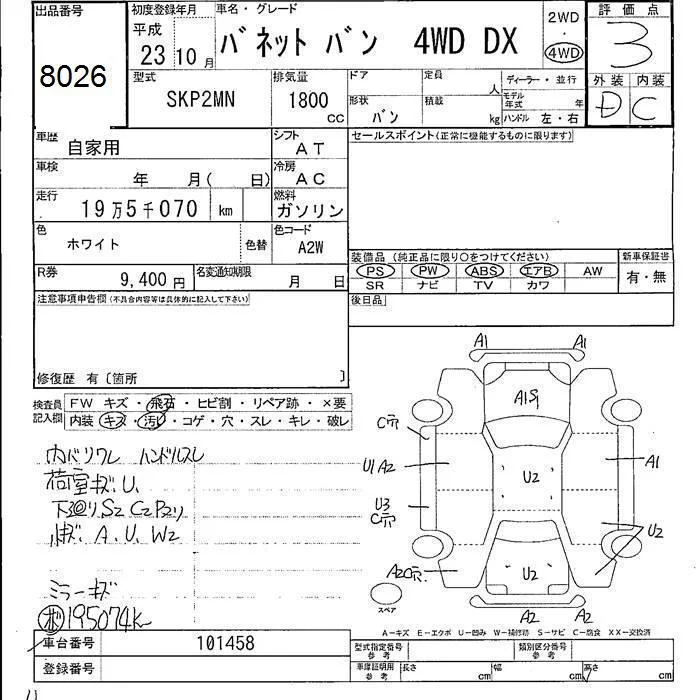 出品番号
8026
初度登録年月
平成
23 10 月
車名・グレード
バネット バン 4WD DX
2WD
・
4WD
評価点
3
外装 内装
D C
型式
SKP2MN
排気量
1800
cc
ドア
定員
人
形状
バン
積載
kg
ディーラー・並行
モデル年式 年
ハンドル 左・右
車歴
自家用
シフト
AT
セールスポイント(正常に機能するものに限ります)
車検
年 月( 日)
冷房
AC
走行
19万5千070 km
燃料
ガソリン
色
ホワイト
色替
色コード
A2W
装備品 (純正品に限り○をつけてください)
PS PW ABS エアB AW
SR ナビ TV カワ
新車保証書
有・無
R券
9,400 円
名変通知期限
月 日
後日品
注意事項申告欄(不具合内容等は具体的に記入して下さい)
修復歴 有〔箇所 〕
検査員記入欄
FW キズ・飛石・ヒビ割・リペア跡・×要
内装 キズ・汚レ・コゲ・穴・スレ・キレ・破レ
内バリワレ ハンドルスレ
荷室キズ.U.
下廻りS2 C2 P2リ
キズ.A.U.W2
ミラーキズ
195074K
A1 A1
A1
C穴
U1 A2
U2
A1
U3
C穴
U2
A2 C穴
U2
A2 A2
スペア
A-キズ E-エクボ U-凹み W-補修跡 S-サビ C-腐食 XX-交換済
車台番号
101458
型式指定番号
参考
類別区分番号
参考
登録番号
車庫証明用
参考
長さ cm 幅 cm 高さ cm